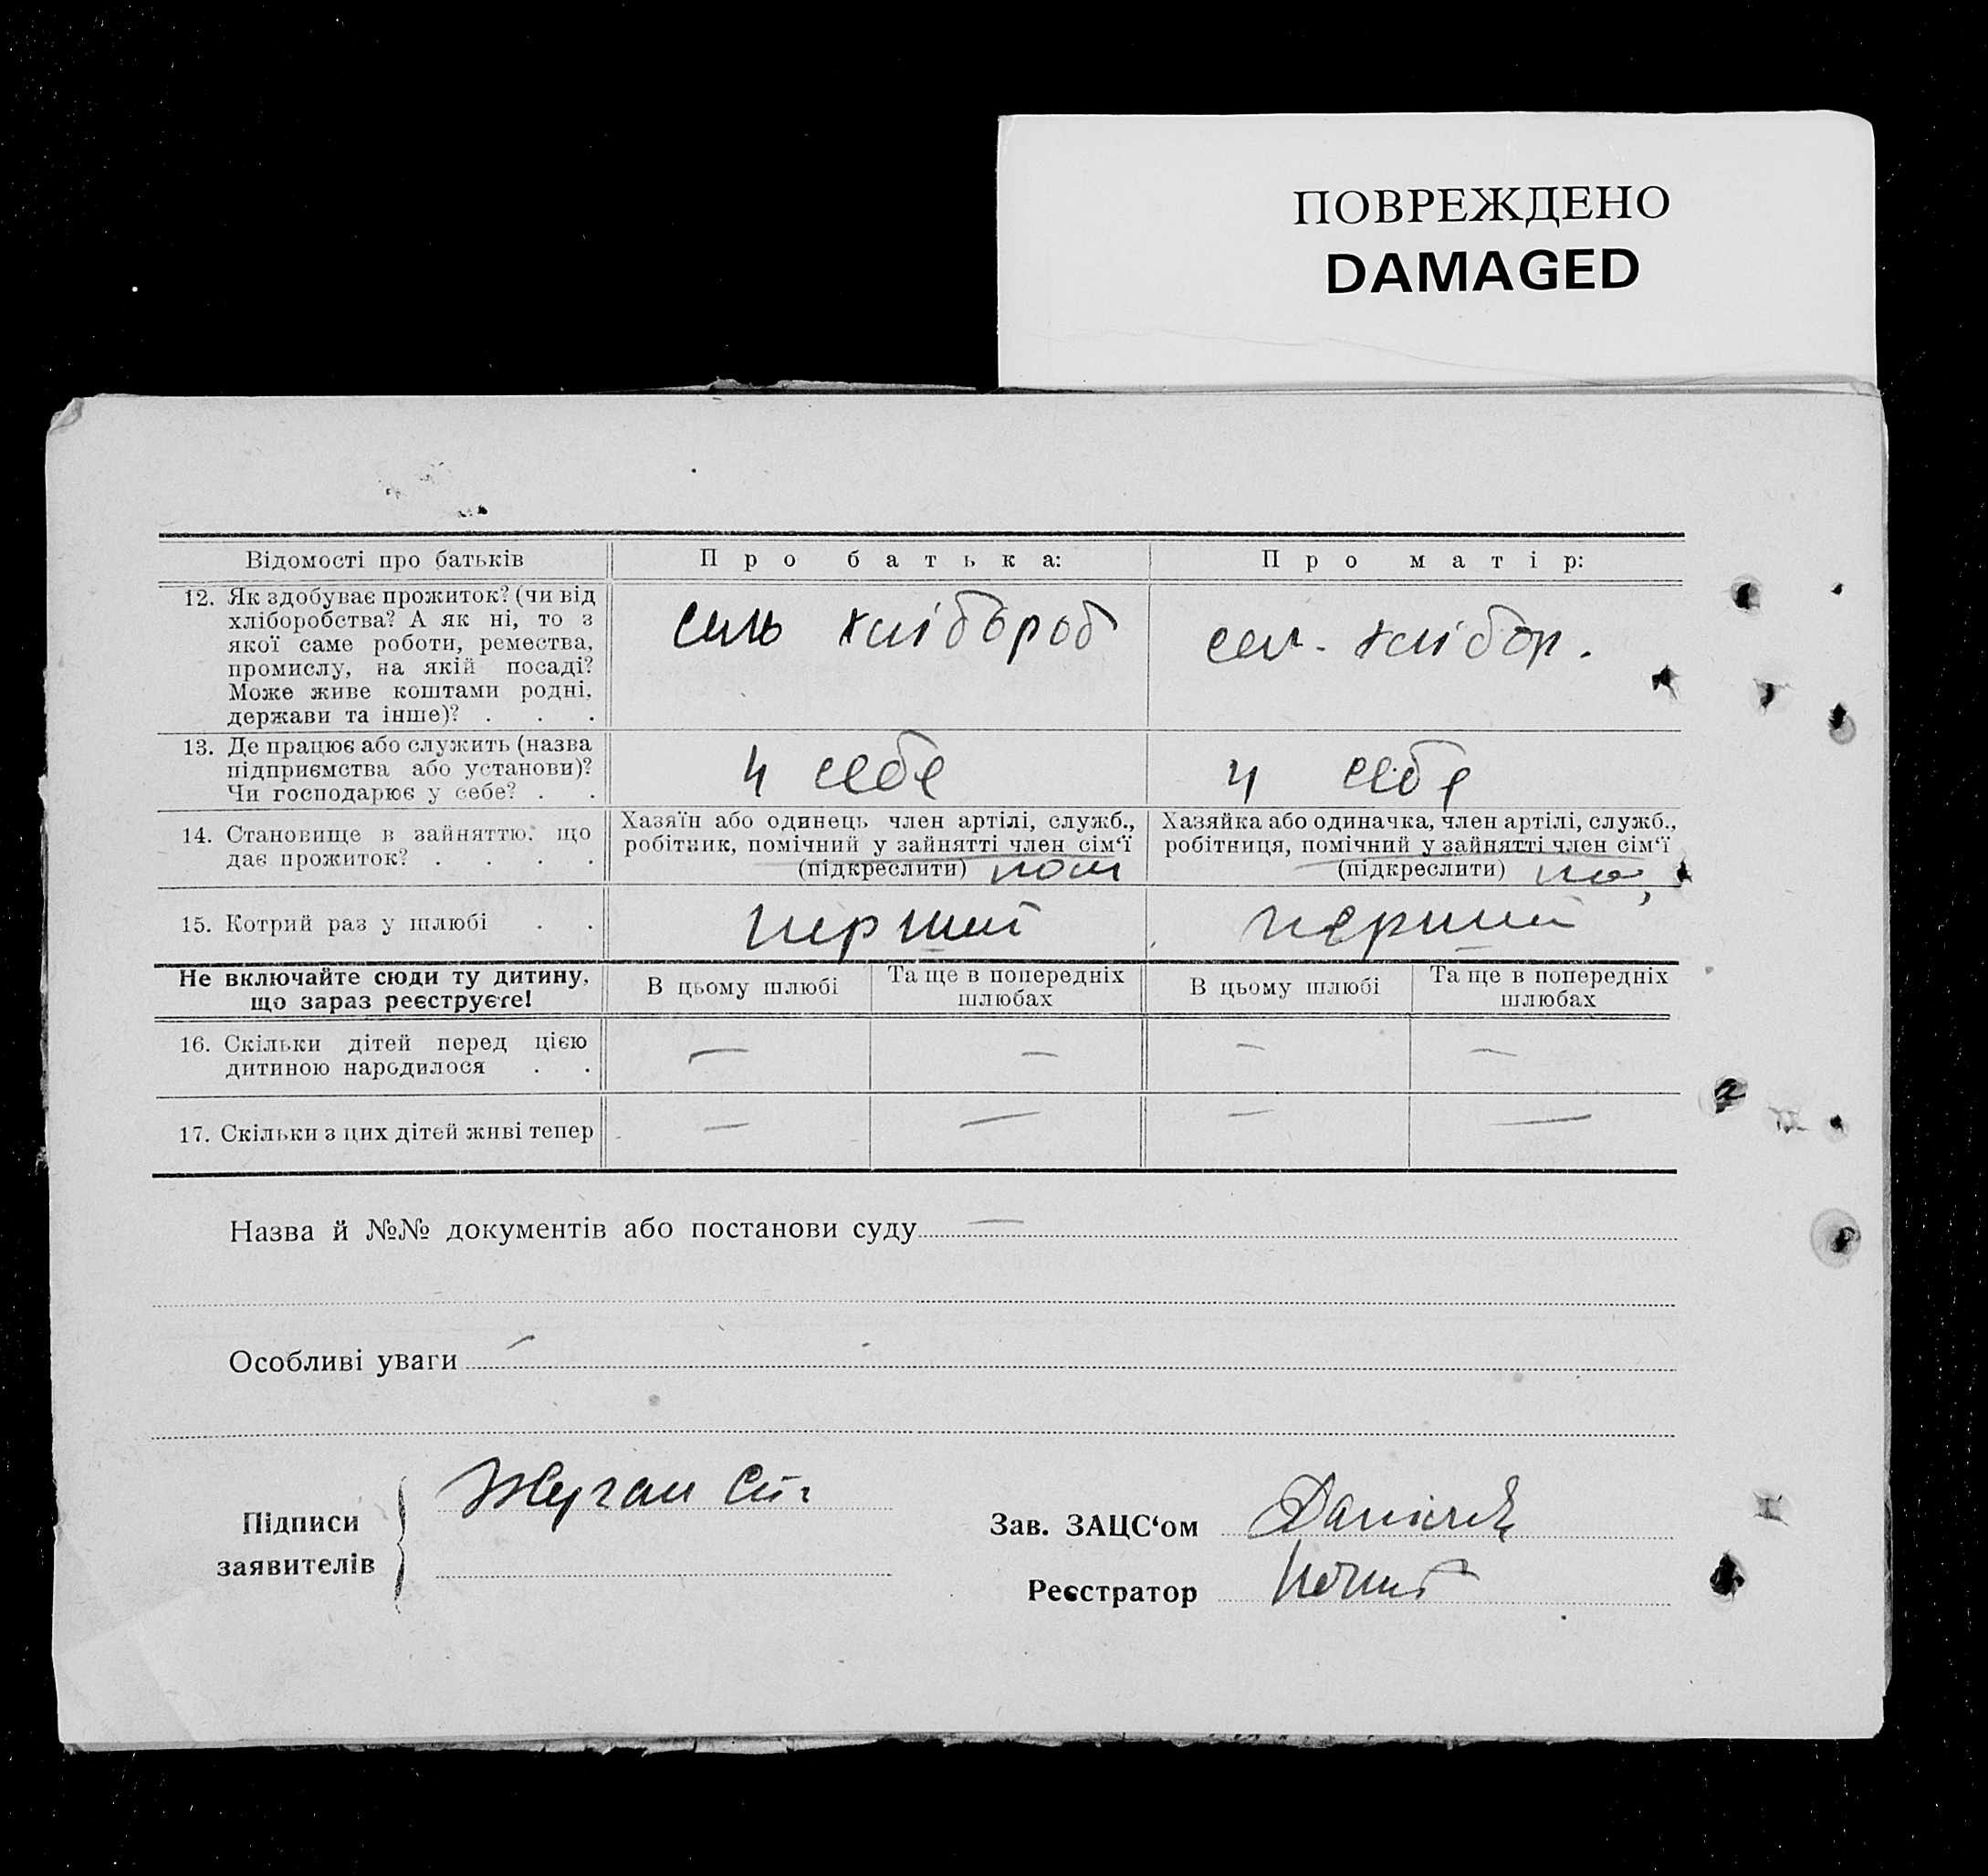 ПОВРЕЖДЕНО
DAMAGED
Відомості про батьків
Про батька:
Про матір:
12. Як здобуває прожиток? (чи від
хліборобства? А як ні, то з
якої саме роботи, ремества,
промислу, на якій посаді?
Може живе коштами родні,
держави та інше)? . . .
сель хлібороб
сел. хлібор.
13. Де працює або служить (назва
підприємства або установи)?
Чи господарює у себе? . .
у себе
у себе
14. Становище в зайняттю, що
дає прожиток? . . . .
Хазяїн або одинець член артілі, служб.,
робітник, помічний у зайнятті член сім‘ї
(підкреслити)
Хазяйка або одиначка, член артілі, служб.,
робітниця, помічний у зайнятті член сім‘ї
(підкреслити)
15. Котрий раз у шлюбі . .
перший
перший
Не включайте сюди ту дитину,
що зараз реєструєте!
В цьому шлюбі
Та ще в попередніх
шлюбах
В цьому шлюбі
Та ще в попередніх
шлюбах
16. Скільки дітей перед цією
дитиною народилося . .
— — — —
17. Скільки з цих дітей живі тепер
— — — —
Назва й №№ документів або постанови суду —
Особливі уваги —
Підписи
заявителів
Жуган
Зав. ЗАЦС‘ом
Реєстратор